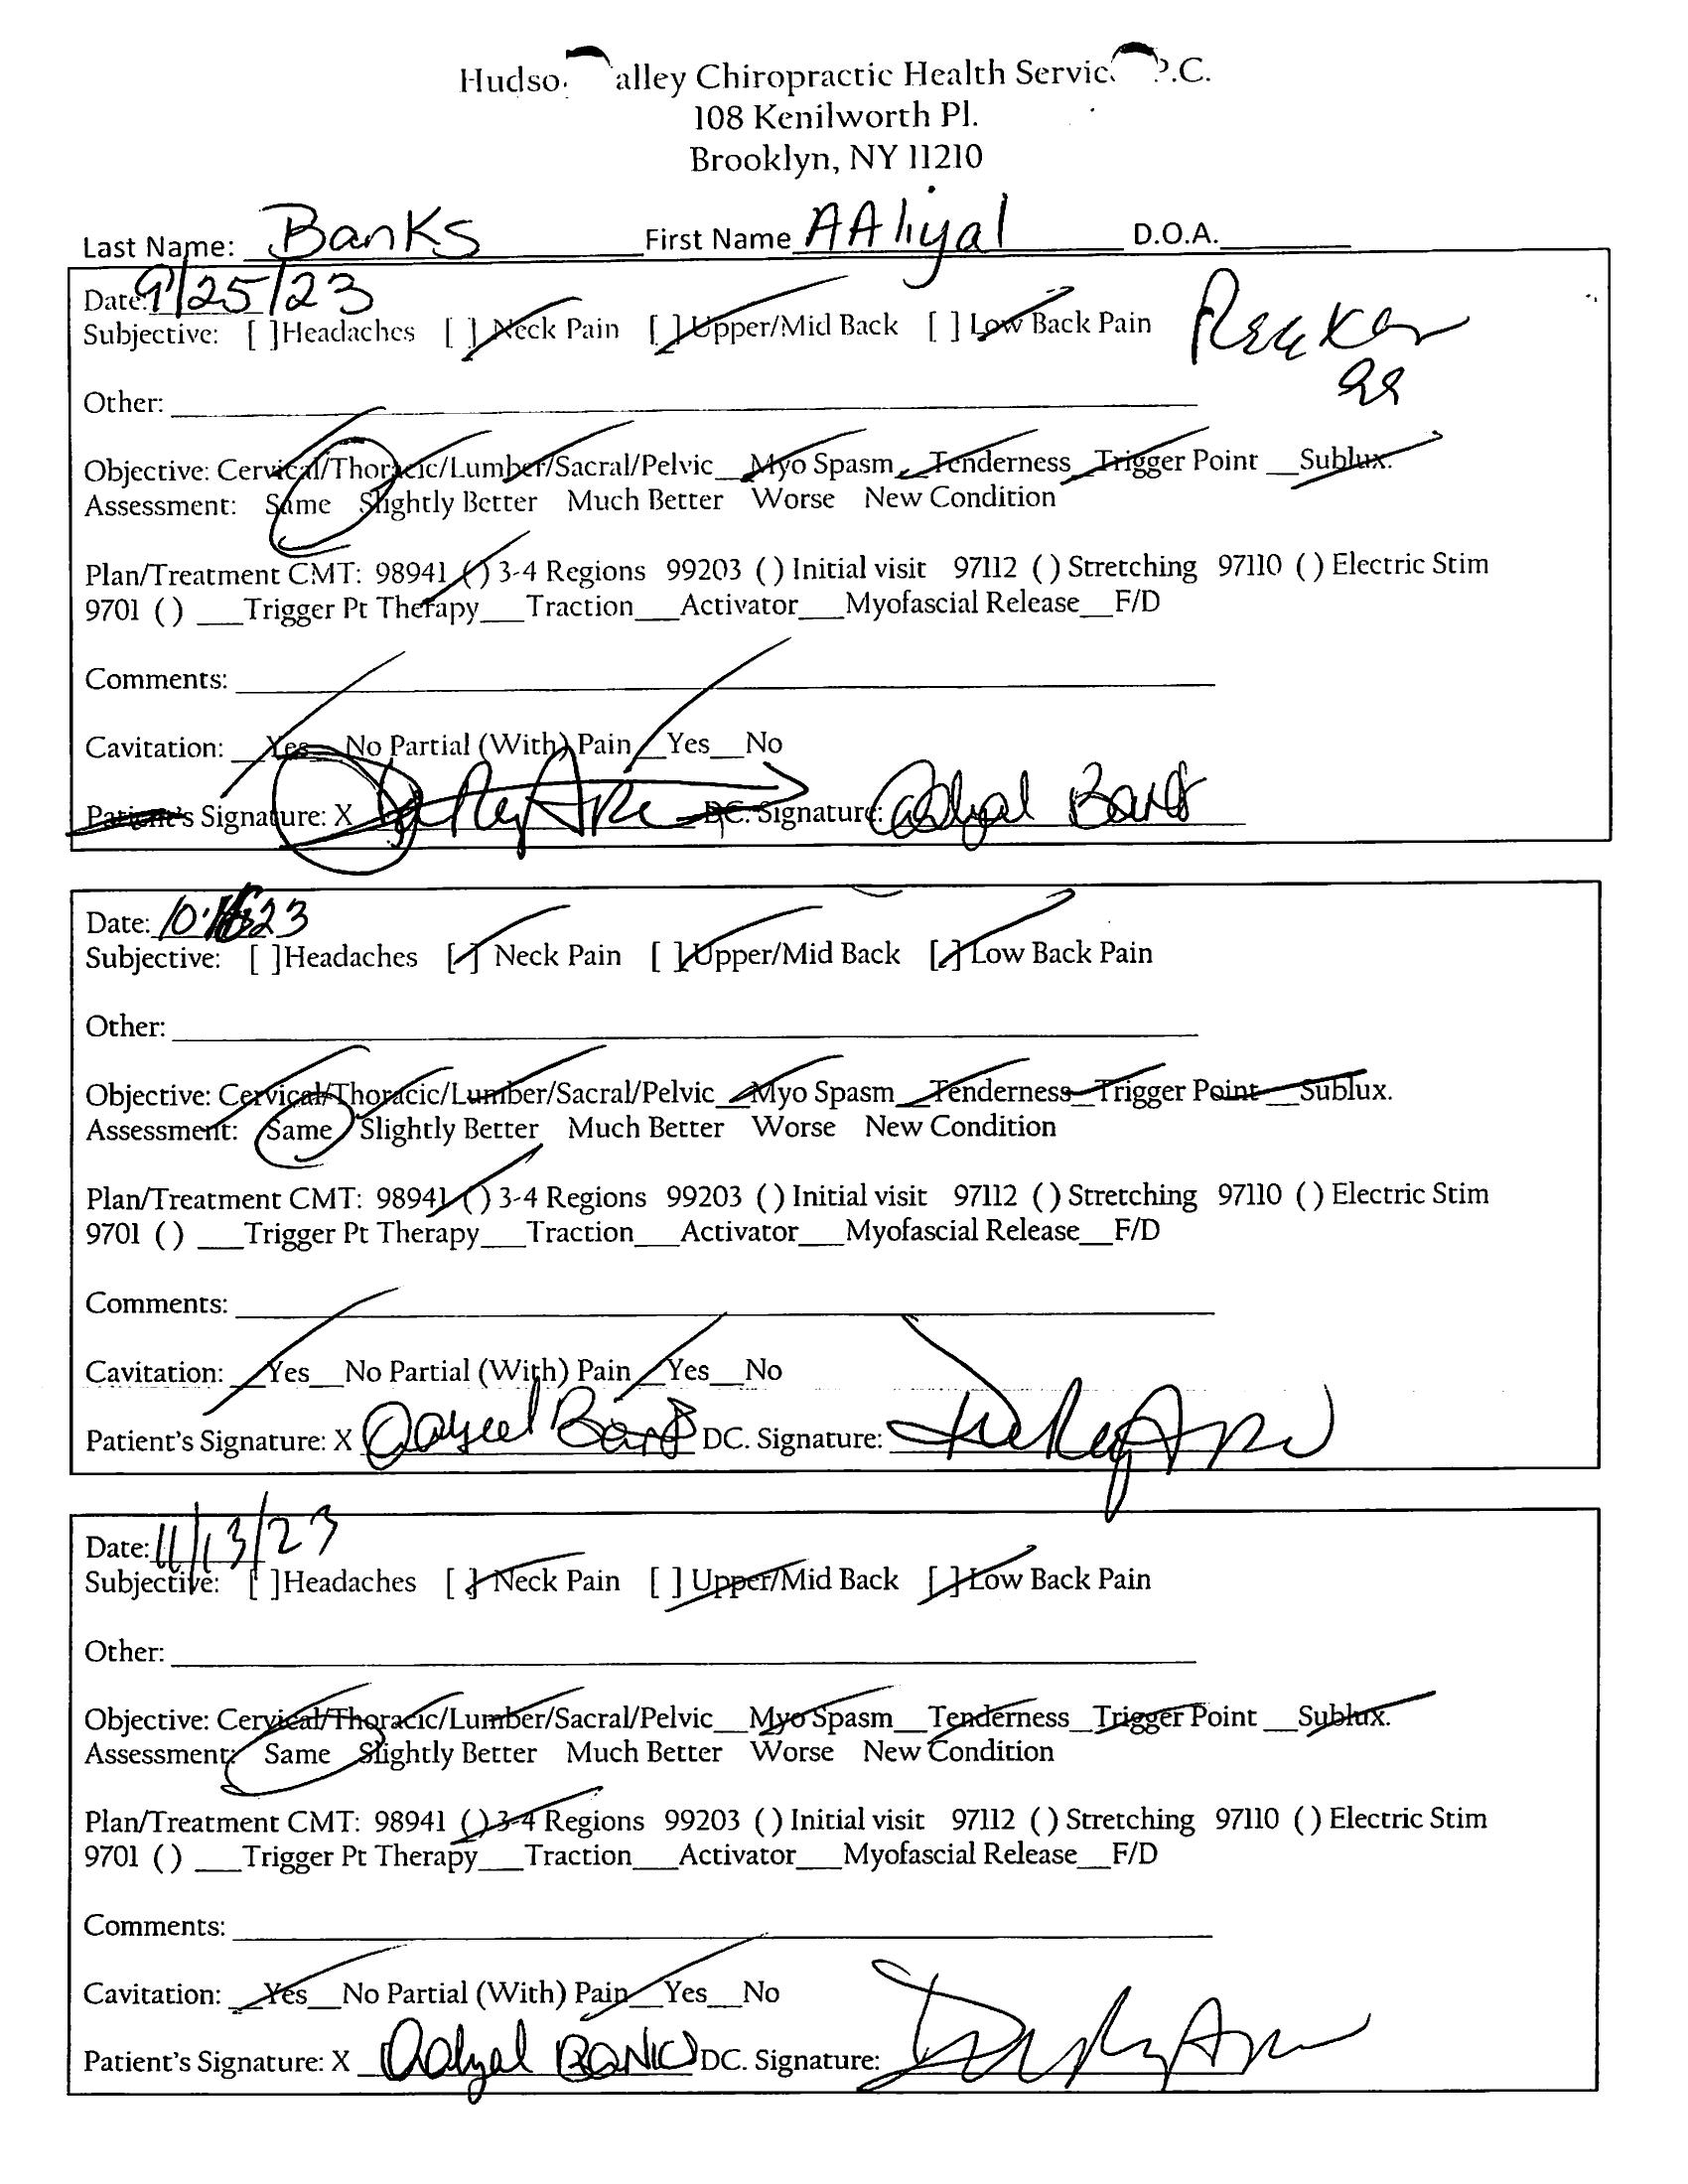 Hudso alley Chiropractic Health Servic P.C.
108 Kenilworth Pl.
Brooklyn, NY 11210
Last Name: Banks First Name AAliyal D.O.A.
Date: 9/25/23
Subjective: [ ]Headaches [ ] Neck Pain [ ] Upper/Mid Back [ ] Low Back Pain
Other:
Objective: Cervical/Thoracic/Lumber/Sacral/Pelvic__Myo Spasm__Tenderness__Trigger Point __Sublux.
Assessment: Same Slightly Better Much Better Worse New Condition
Plan/Treatment CMT: 98941 ( ) 3-4 Regions 99203 ( ) Initial visit 97112 ( ) Stretching 97110 ( ) Electric Stim
9701 ( ) ___Trigger Pt Therapy___Traction___Activator___Myofascial Release__F/D
Comments:
Cavitation: __Yes__No Partial (With) Pain__Yes__No
Patient's Signature: X DC. Signature: Banks
Date: 10 23
Subjective: [ ]Headaches [ ] Neck Pain [ ] Upper/Mid Back [ ] Low Back Pain
Other:
Objective: Cervical/Thoracic/Lumber/Sacral/Pelvic__Myo Spasm__Tenderness__Trigger Point__Sublux.
Assessment: Same Slightly Better Much Better Worse New Condition
Plan/Treatment CMT: 98941 ( ) 3-4 Regions 99203 ( ) Initial visit 97112 ( ) Stretching 97110 ( ) Electric Stim
9701 ( ) ___Trigger Pt Therapy___Traction___Activator___Myofascial Release__F/D
Comments:
Cavitation: __Yes__No Partial (With) Pain__Yes__No
Patient's Signature: X DC. Signature:
Date: 11/13/23
Subjective: [ ]Headaches [ ] Neck Pain [ ] Upper/Mid Back [ ] Low Back Pain
Other:
Objective: Cervical/Thoracic/Lumber/Sacral/Pelvic__Myo Spasm__Tenderness__Trigger Point __Sublux.
Assessment: Same Slightly Better Much Better Worse New Condition
Plan/Treatment CMT: 98941 ( ) 3-4 Regions 99203 ( ) Initial visit 97112 ( ) Stretching 97110 ( ) Electric Stim
9701 ( ) ___Trigger Pt Therapy___Traction___Activator___Myofascial Release__F/D
Comments:
Cavitation: __Yes__No Partial (With) Pain__Yes__No
Patient's Signature: X DC. Signature: